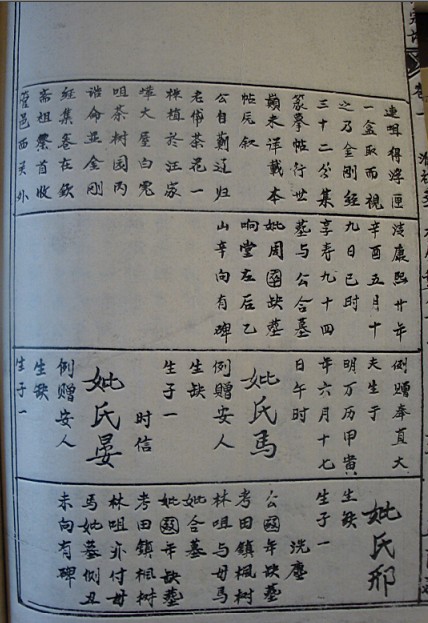 连咀得浮匣
一盒取而视
之乃金刚经
三十二分集
篆摹帖行世
颠末详载本
帖后叙
公自蕲辽归
老僑茶花一
株植於汪家
嶂大屋白宪
咀茶树园丙
诰命並金刚
经集卷在钦
斋祖祭首收
管邑西关外
清康熙廿年
辛酉五月十
九日巳时
享寿九十四
墓与公合墓
妣周國缺墓
响堂左后乙
山辛向有碑
例赠奉直大
夫生于
明万历甲寅
年六月十七
日午时
妣氏馬
例赠安人
生缺
生子一
时信
妣氏晏
例赠安人
生缺
生子一
妣氏邢
生缺
生子一
洗塵
公國年缺墓
考田鎮楓树
林咀与母馬
妣合墓
妣國年缺墓
考田鎮楓树
林咀亦付母
馬妣墓侧丑
未向有碑